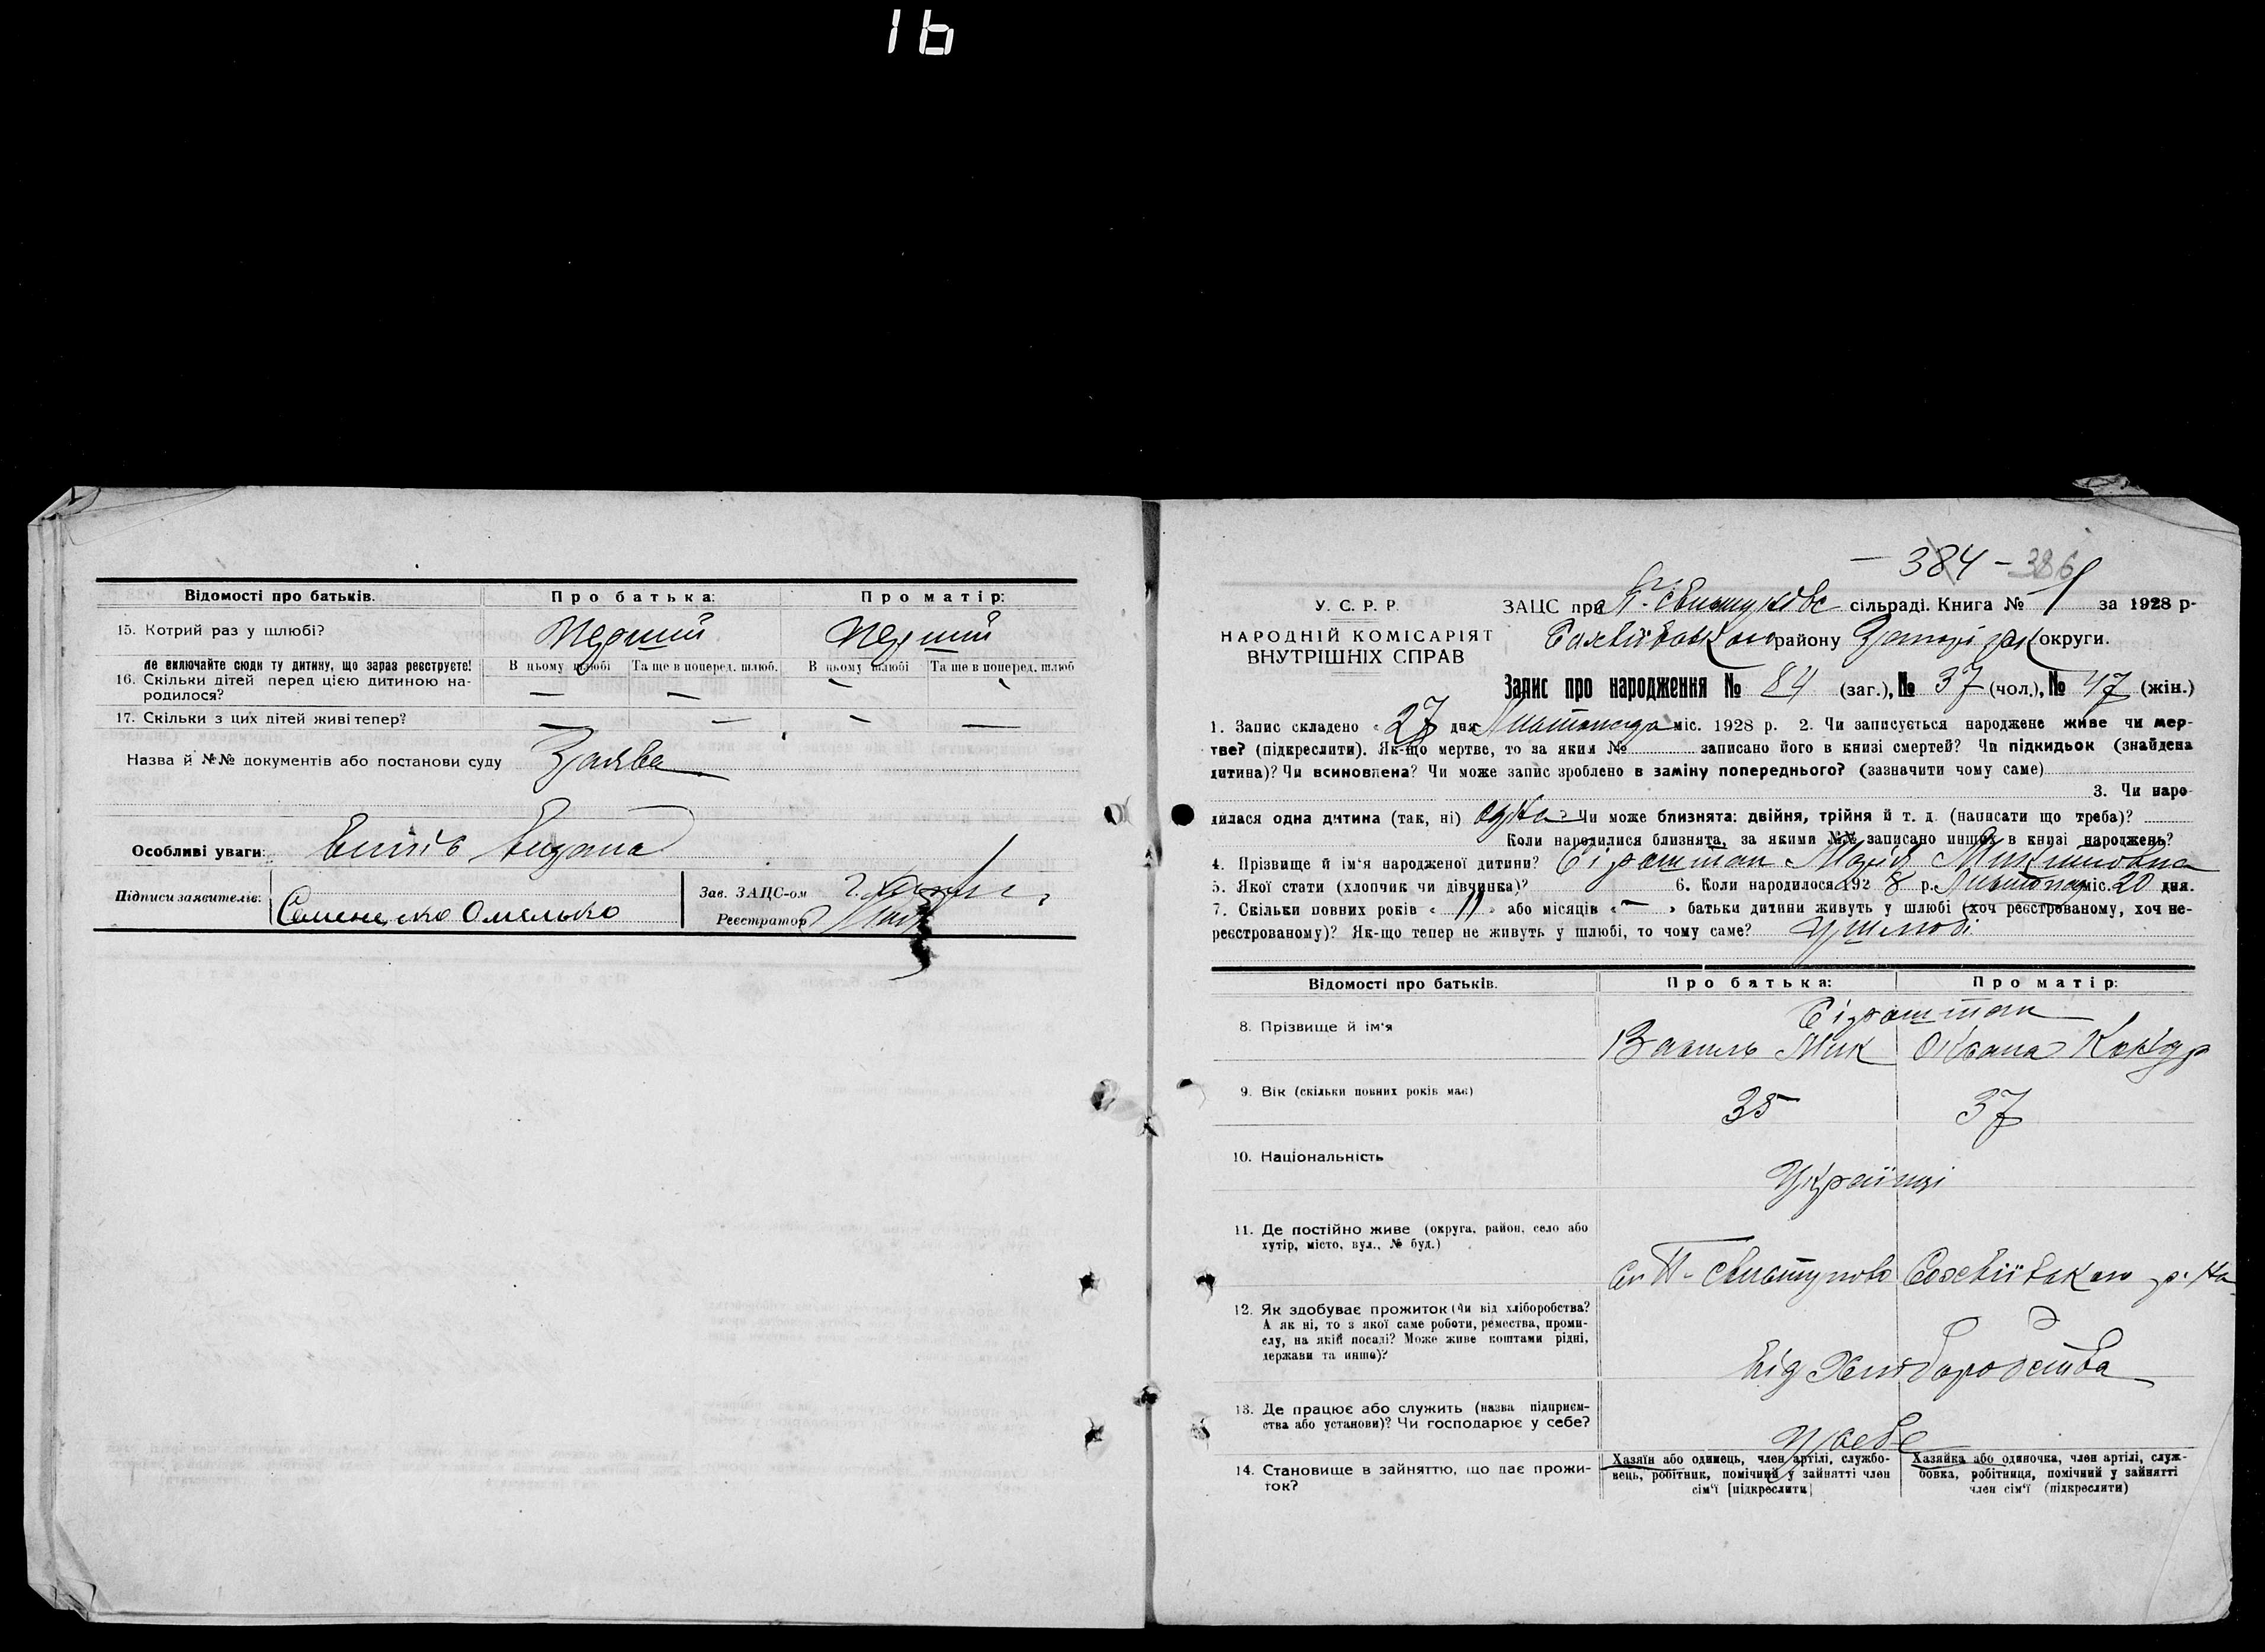 16
Відомості про батьків. Про батька: Про матір:
15. Котрий раз у шлюбі? Перший Перший
Не включайте сюди ту дитину, що зараз реєструєте! В цьому шлюбі Та ще в поперед. шлюб. В цьому шлюбі Та ще в поперед. шлюб
16. Скільки дітей перед цією дитиною на-
родилося? — — — —
17. Скільки з цих дітей живі тепер? — — — —
Назва й №№ документів або постанови суду Заява
Особливі уваги: Витяг Видано
Підписи заявителів: Семененко Омелько
Зав. ЗАЦС-ом
Реєстратор
— 384 — 386
У. С. Р. Р.
НАРОДНІЙ КОМІСАРІЯТ
ВНУТРІШНІХ СПРАВ
ЗАЦС при сільраді. Книга № 1 за 1928 р-
району округи.
Запис про народження № 84 (заг.), № 37 (чол.), № 47 (жін.)
1. Запис складено « 27 дня Листопада міс. 1928 р. 2. Чи записується народжене живе чи мер-
тве? (підкреслити). Як-що мертве, то за яким № записано його в книзі смертей? Чи підкидьок (знайдена
дитина)? Чи всиновлена? Чи може запис зроблено в заміну попереднього? (зазначити чому саме)
3. Чи наро-
дилася одна дитина (так, ні) одна Чи може близнята: двійня, трійня й т. д. (написати що треба)?
Коли народилися близнята, за якими №№ записано инших в книзі народжень?
4. Прізвище й ім'я народженої дитини? Сіроштан Марія
5. Якої стати (хлопчик чи дівчинка)? 6. Коли народилося 1928 р. Листопад міс. 20 дня.
7. Скільки повних років « 11 » або місяців « — » батьки дитини живуть у шлюбі (хоч реєстрованому, хоч не-
реєстрованому)? Як-що тепер не живуть у шлюбі, то чому саме? У шлюбі
Відомості про батьків. Про батька: Про матір:
8. Прізвище й ім'я Сіроштан
Василь Мик Оксана Кондр
9. Вік (скільки повних років має) 35 37
10. Національність Українці
11. Де постійно живе (округа, район, село або
хутір, місто, вул., № буд.)
с. П-Свистуново Софіївського р-на
12. Як здобуває прожиток (Чи від хліборобства?
А як ні, то з якої саме роботи, ремества, проми-
слу, на якій посаді? Може живе коштами рідні,
держави та инше)?
Від Хліборобства
13. Де працює або служить (назва підприєм-
ства або установи)? Чи господарює у себе?
У себе
14. Становище в зайняттю, що дає прожи-
ток?
Хазяїн або одинець, член артілі, службо-
вець, робітник, помічний у зайнятті член
сім'ї [підкреслити]
Хазяйка або одиночка, член артілі, служ-
бовка, робітниця, помічний у зайнятті
член сім'ї (підкреслити)